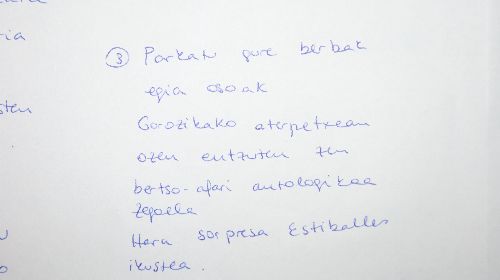 ria
sten
③ Parkatu gure berbak
egia osoak
Gorozikako aterpetxean
ozen entzuten zen
bertso-afari antologikoa
zegoela
Hara sorpresa Estiballes
ikustea.